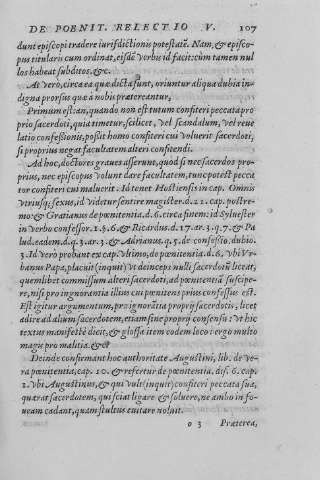 DE POENIT. RELECTIO V. 107
dunt episcopi tradere iurisdictionis potestatē. Nam, & episco-
pus titularis cum ordinat, eisdē verbis id facit: cum tamen nul
los habeat subditos, &c.
At vero, circa ea quæ dicta sunt, oriuntur aliqua dubia in-
digna prorsus quæ à nobis prætereantur,
Primum est: an, quando non est tutum confiteri peccata pro-
prio sacerdoti, quia timetur, scilicet, vel scandalum, vel reue
latio confessionis, possit homo confiteri cui voluerit sacerdoti,
si proprius negat facultatem alteri confitendi.
Ad hoc, doctores graues asserunt, quod si nec sacerdos pro-
prius, nec episcopus volunt dare facultatem, tunc potest pecca
tor confiteri cui maluerit. Id tenet Hostiensis in cap. Omnis
vtriusq; sexus, id videtur sentire magister. d. 21. cap. postre-
mo: & Gratianus de pœnitentia. d. 6. circa finem: id Syluester
in verbo confessor. 1. §. 6. & Ricardus. d. 17. ar. 3. q. 7. & Pa
lud. eadem. d. q. 3. ar. 3. & Adrianus. q. 5. de confessio. dubio.
3. Id vero probant ex cap. vltimo, de pœnitentia. d. 6. vbi Vr-
banus Papa, placuit (inquit) vt deinceps nulli sacerdotū liceat,
quemlibet commissum alteri sacerdoti, ad pœnitentiā suscipe-
re, nisi pro ignorantia illius cui pœnitens prius confessus est.
Est igitur argumentum, pro ignorātia proprij sacerdotis, licet
adire ad alium sacerdotem, etiam sine proprij consensu: vt hic
textus manifestè dicit, & glossa item eodem loco: ergo multo
magis pro malitia. &c
Deinde confirmant hoc authoritate Augustini, lib. de ve-
ra pœnitentia, cap. 10. & refertur de pœnitentia, dis. 6. cap.
1. vbi Augustinus, & qui vult (inquit) confiteri peccata sua,
quærat sacerdotem, qui sciat ligare & soluere, ne ambo in fo-
ueam cadant, quam stultus euitare noluit.
o 3 Præterea,